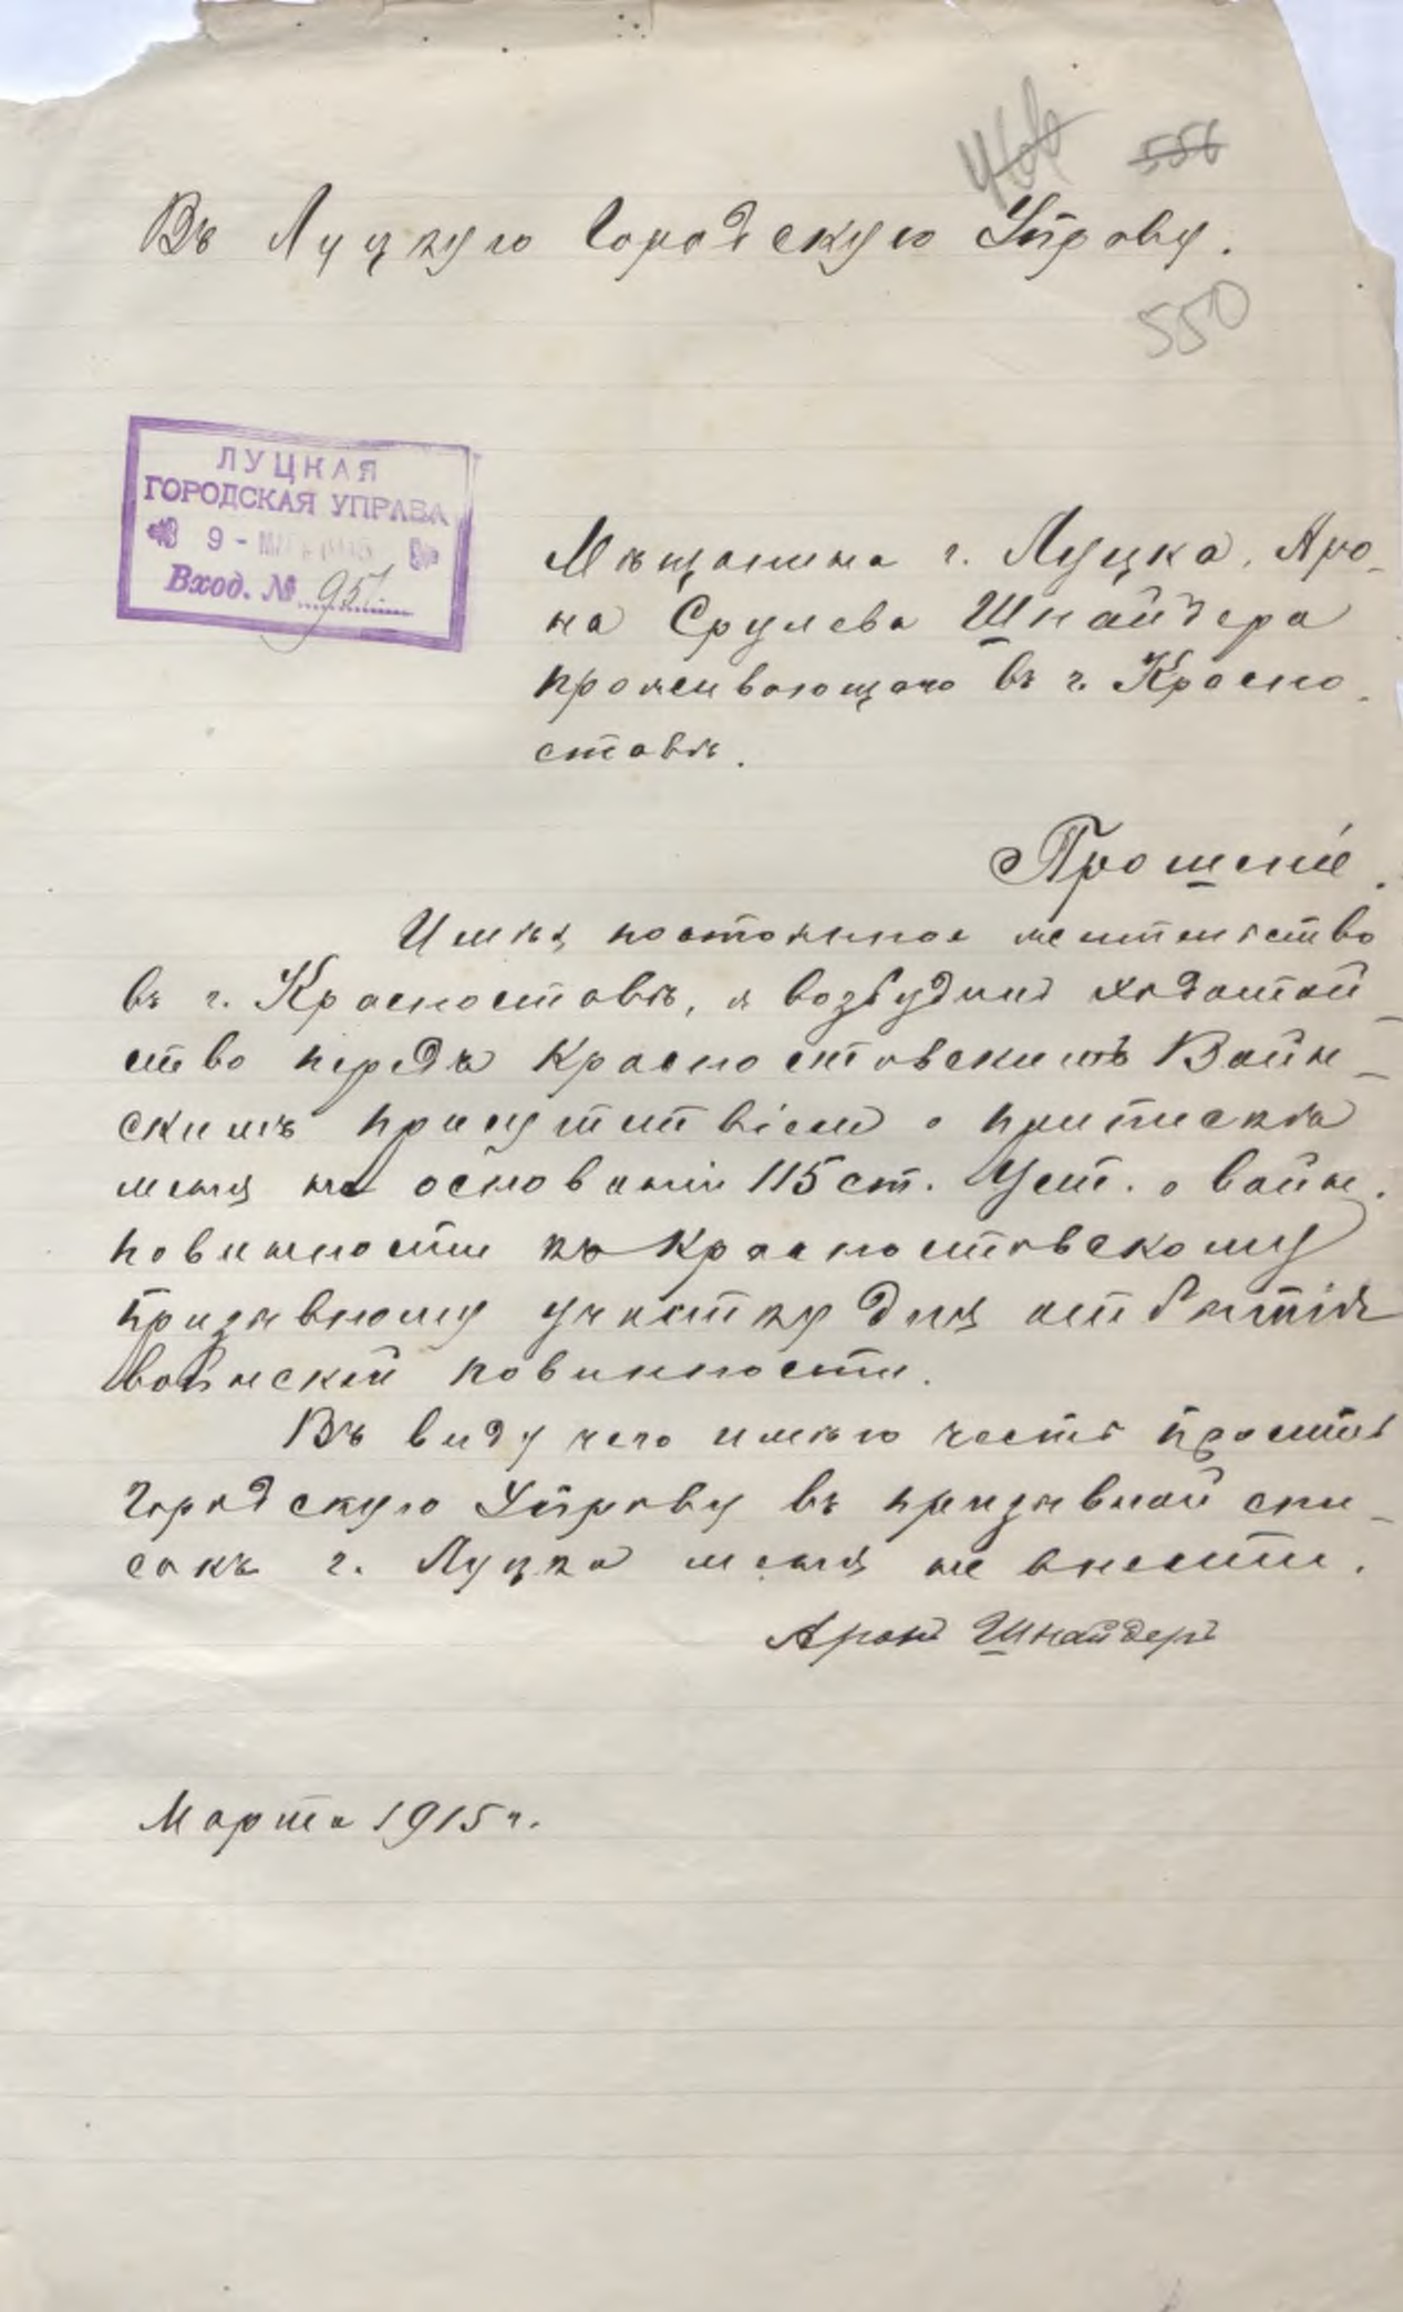 556
Въ Луцкую Городскую Управу.
550
ЛУЦКАЯ
ГОРОДСКАЯ УПРАВА
9 -
Вход. № 951
Мѣщанина г. Луцка, Аро-
на Срулева Шнайдера
проживающаго въ г. Красно-
ставѣ.
Прошеніе.
Имѣя постоянное жительство
въ г. Красноставѣ, я возбудилъ ходатай-
ство передъ Красноставскимъ Воин-
скимъ присутствіемъ о припискѣ
меня на основаніи 115 ст. Уст. о воин.
повинности къ Красноставскому
призывному участку для отбытія
воинской повинности.
Въ виду чего имѣю честь просить
Городскую Управу въ призывной спи-
сокъ г. Луцка меня не внести.
Аронъ Шнайдеръ
Марта 1915 г.